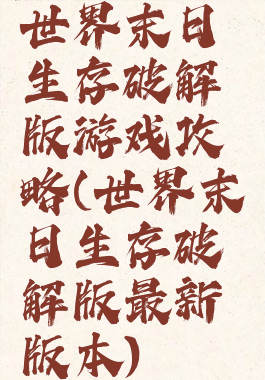 世界末日
生存破解
版游戏攻
略(世界末
日生存破
解版最新
版本)